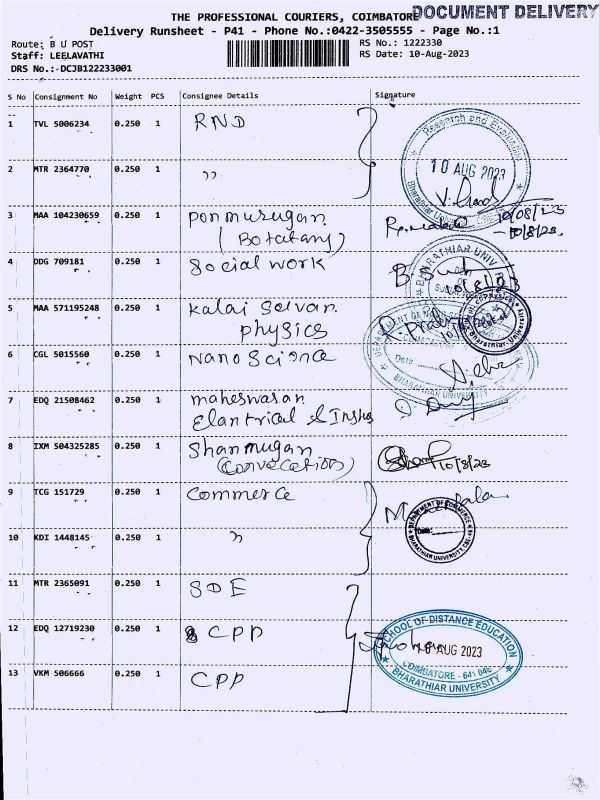 THE PROFESSIONAL COURIERS, COIMBATORE
DOCUMENT DELIVERY
Delivery Runsheet - P41 - Phone No.:0422-3505555 - Page No.:1
Route: B U POST
RS No.: 1222330
Staff: LEELAVATHI
RS Date: 10-Aug-2023
DRS No.: DCJB122233001
S No Consignment No Weight PCS Consignee Details Signature
1 TVL 5006234 0.250 1 RND
Research and Evaluation
10 AUG 2023
Bharathiar University
2 MTR 2364770 0.250 1 "
3 MAA 104230659 0.250 1 Ponmurugan
10/08/23
(Botatany)
10/8/23
4 DDG 709181 0.250 1 Social work
BHARATHIAR UNIV
10/8/23
5 MAA 571195248 0.250 1 Kalai Selvan
physics
6 CGL 5015560 0.250 1 Nano Science
Date
BHARATHIAR UNIVERSITY
7 EDQ 21508462 0.250 1 maheswaran
Elantrical & Instru
8 IXM 504325285 0.250 1 Shanmugan
(Convocation)
10/8/23
9 TCG 151729 0.250 1 Commerce
DEPARTMENT OF COMMERCE
Date:
BHARATHIAR UNIVERSITY
10 KDI 1448145 0.250 1 "
11 MTR 2365091 0.250 1 SDE
12 EDQ 12719230 0.250 1 CPP
SCHOOL OF DISTANCE EDUCATION
10 AUG 2023
COIMBATORE - 641 046
BHARATHIAR UNIVERSITY
13 VKM 506666 0.250 1 CPP